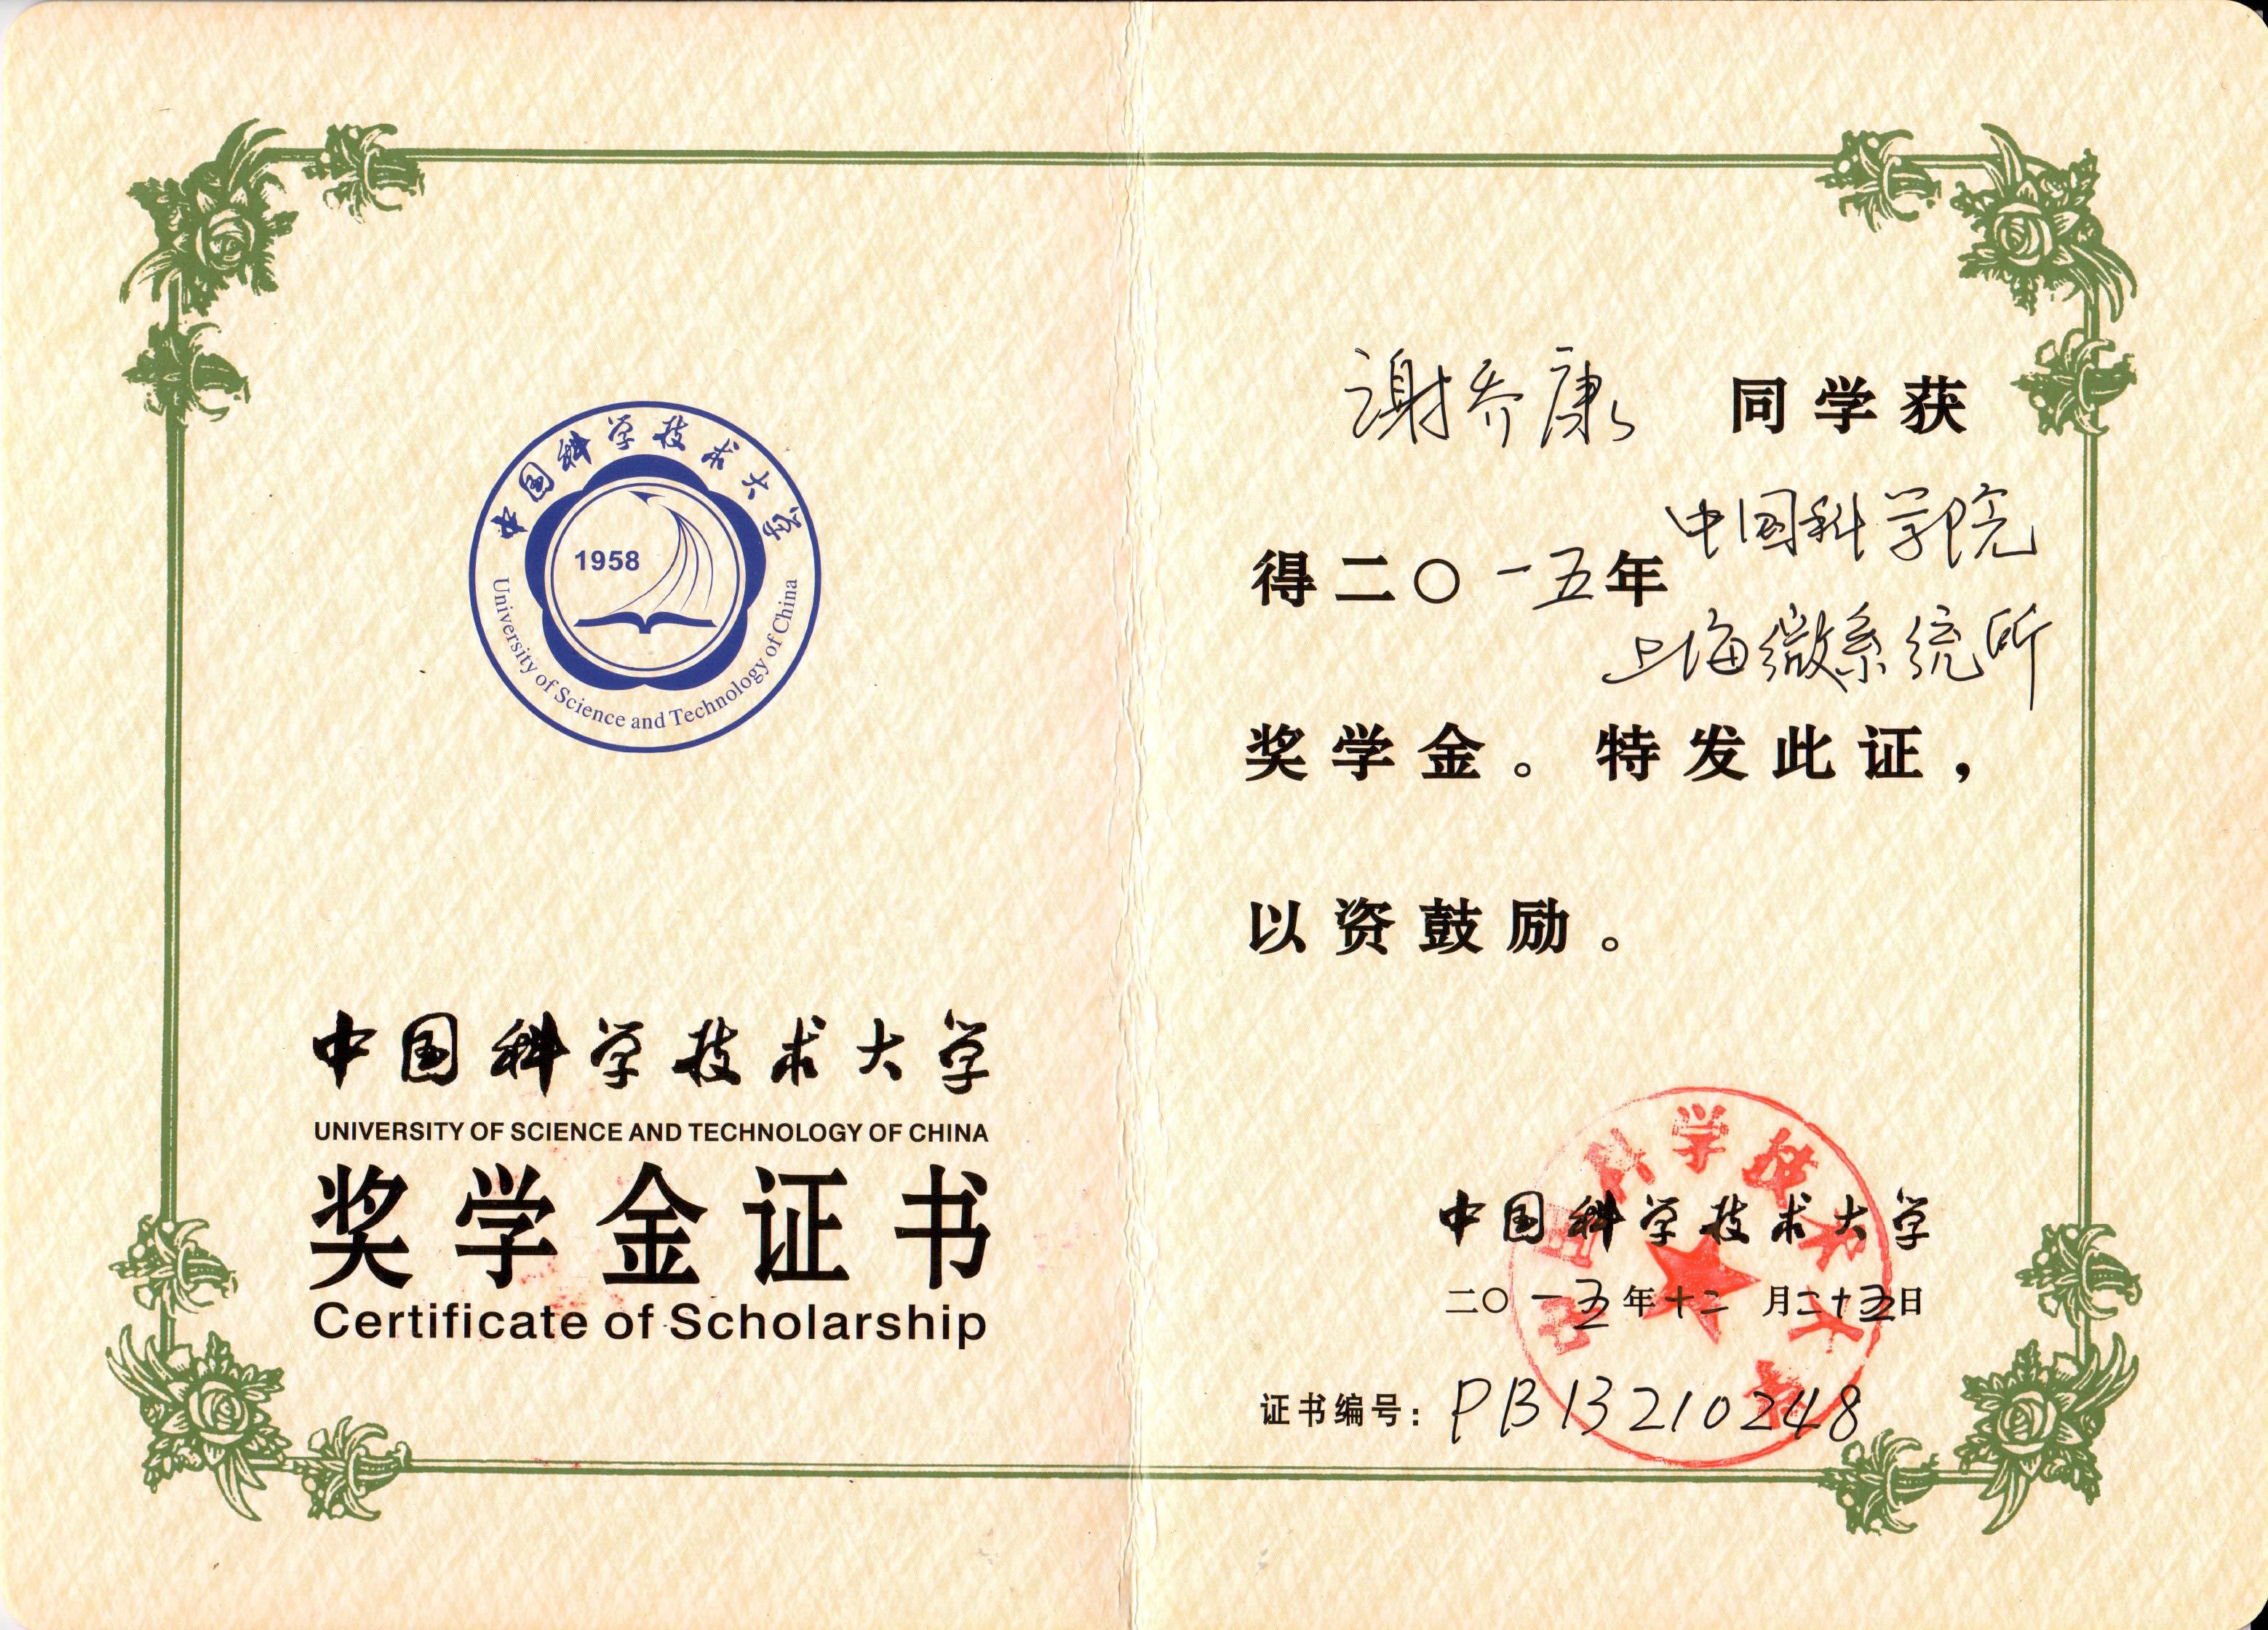 中国科学技术大学
1958
University of Science and Technology of China
中国科学技术大学
UNIVERSITY OF SCIENCE AND TECHNOLOGY OF CHINA
奖学金证书
Certificate of Scholarship
谢乔康 同学获
得二〇一五年中国科学院
上海微系统所
奖学金。特发此证，
以资鼓励。
中国科学技术大学
中国科学技术大学
二〇一五年十二月二十五日
证书编号：PB13210248